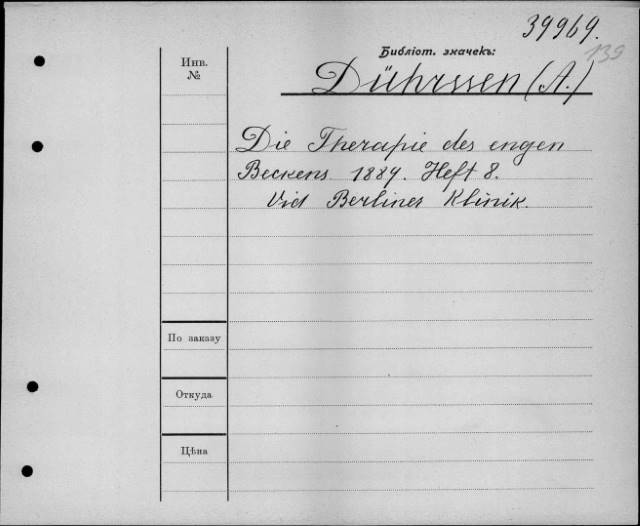 39969.
139
Библіот. значекъ:
Инв.
№
Dührssen (A.)
Die Therapie des engen
Beckens. 1889. Heft 8.
Vid Berliner Klinik.
По заказу
Откуда
Цѣна